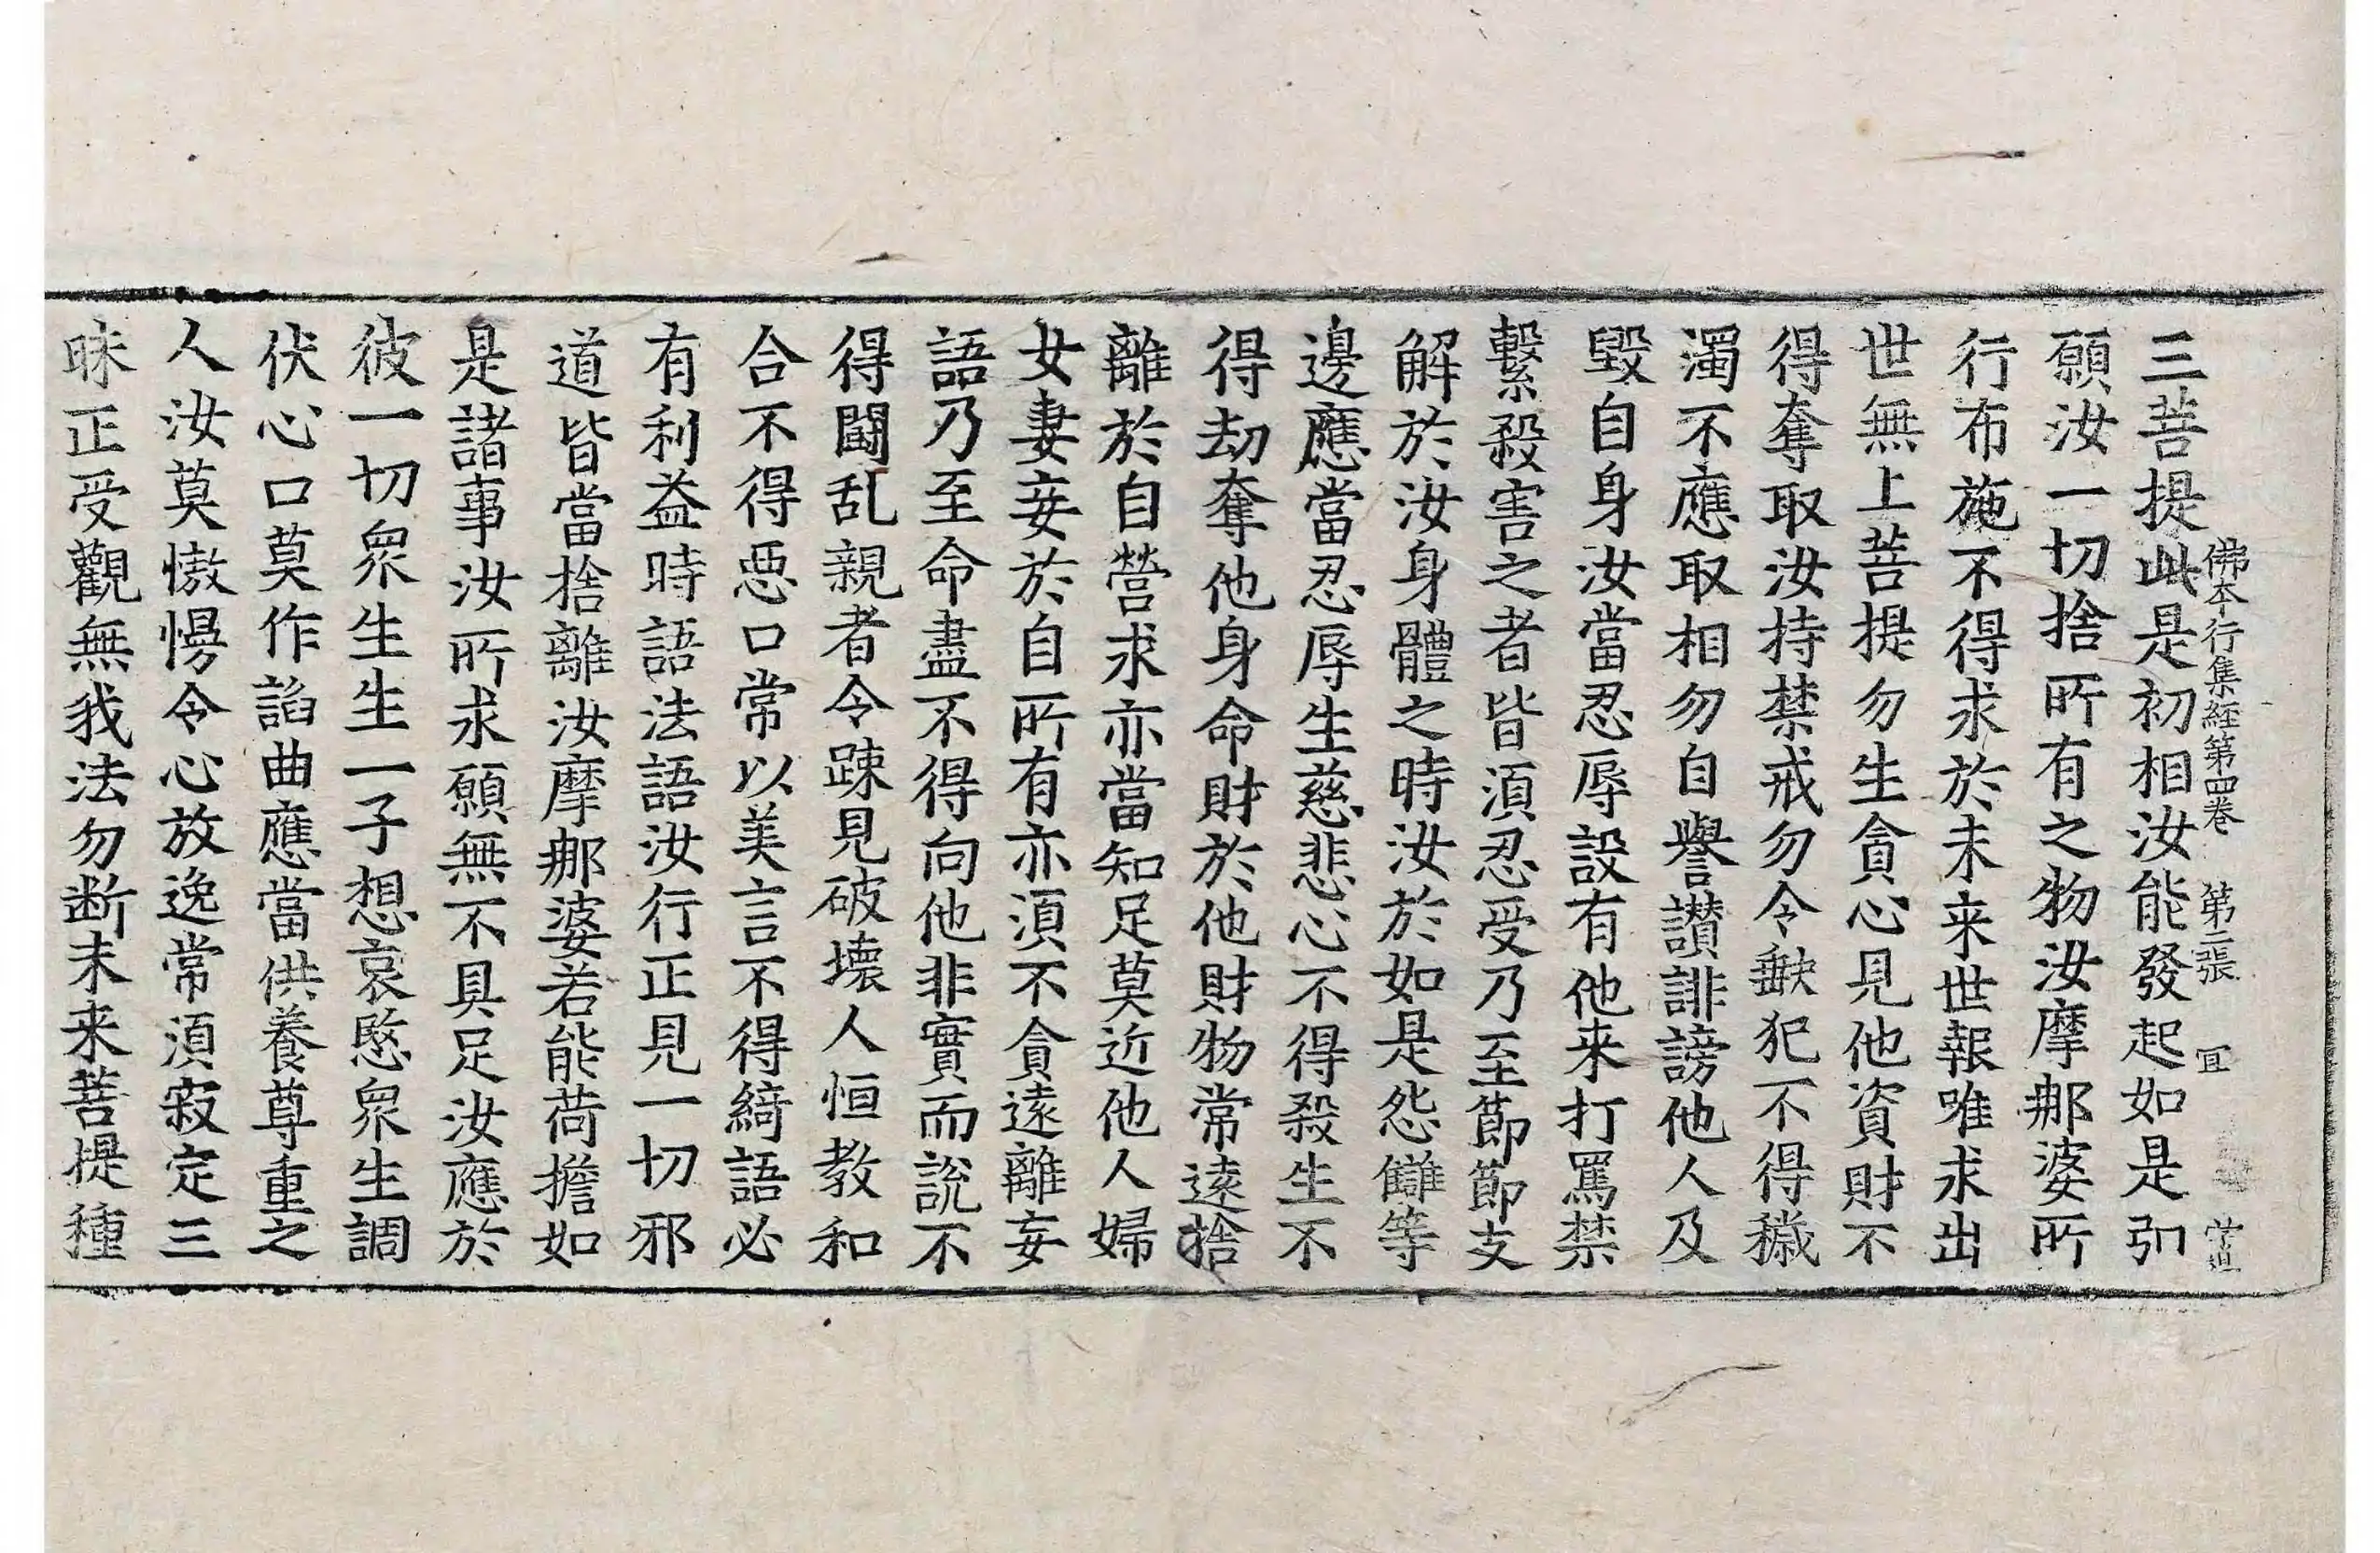 佛本行集経第四卷 第二張 冝
三菩提此是初相汝能發起如是弘
願汝一切捨所有之物汝摩那婆所
行布施不得求於未来世報唯求出
世無上菩提勿生貪心見他資財不
得奪取汝持禁戒勿令𡙇犯不得穢
濁不應取相勿自譽讃誹謗他人及
毀自身汝當忍辱設有他来打罵禁
繫殺害之者皆湏忍受乃至節節支
解於汝身體之時汝於如是怨讎等
邊應當忍辱生慈悲心不得殺生不
得劫奪他身命財於他財物常遠捨
離於自營求亦當知足莫近他人婦
女妻妾於自所有亦湏不貪遠離妄
語乃至命盡不得向他非實而說不
得鬪乱親者令踈見破壞人恒教和
合不得惡口常以美言不得綺語必
有利益時語法語汝行正見一切邪
道皆當捨離汝摩那婆若能荷擔如
是諸事汝所求願無不具足汝應於
彼一切衆生生一子想哀愍衆生調
伏心口莫作諂曲應當供養尊重之
人汝莫慠慢令心放逸常湏寂定三
昧正受觀無我法勿断未来菩提種